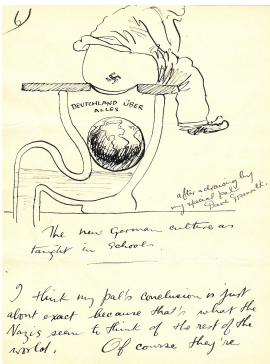 6)
DEUTCHLAND ÜBER
ALLES
after a drawing by
my special pal
Dave
The new German culture as
taught in Schools.
I think my pal's conclusion is just
about exact because that's what the
Nazis seem to think of the rest of the
world. Of course they're